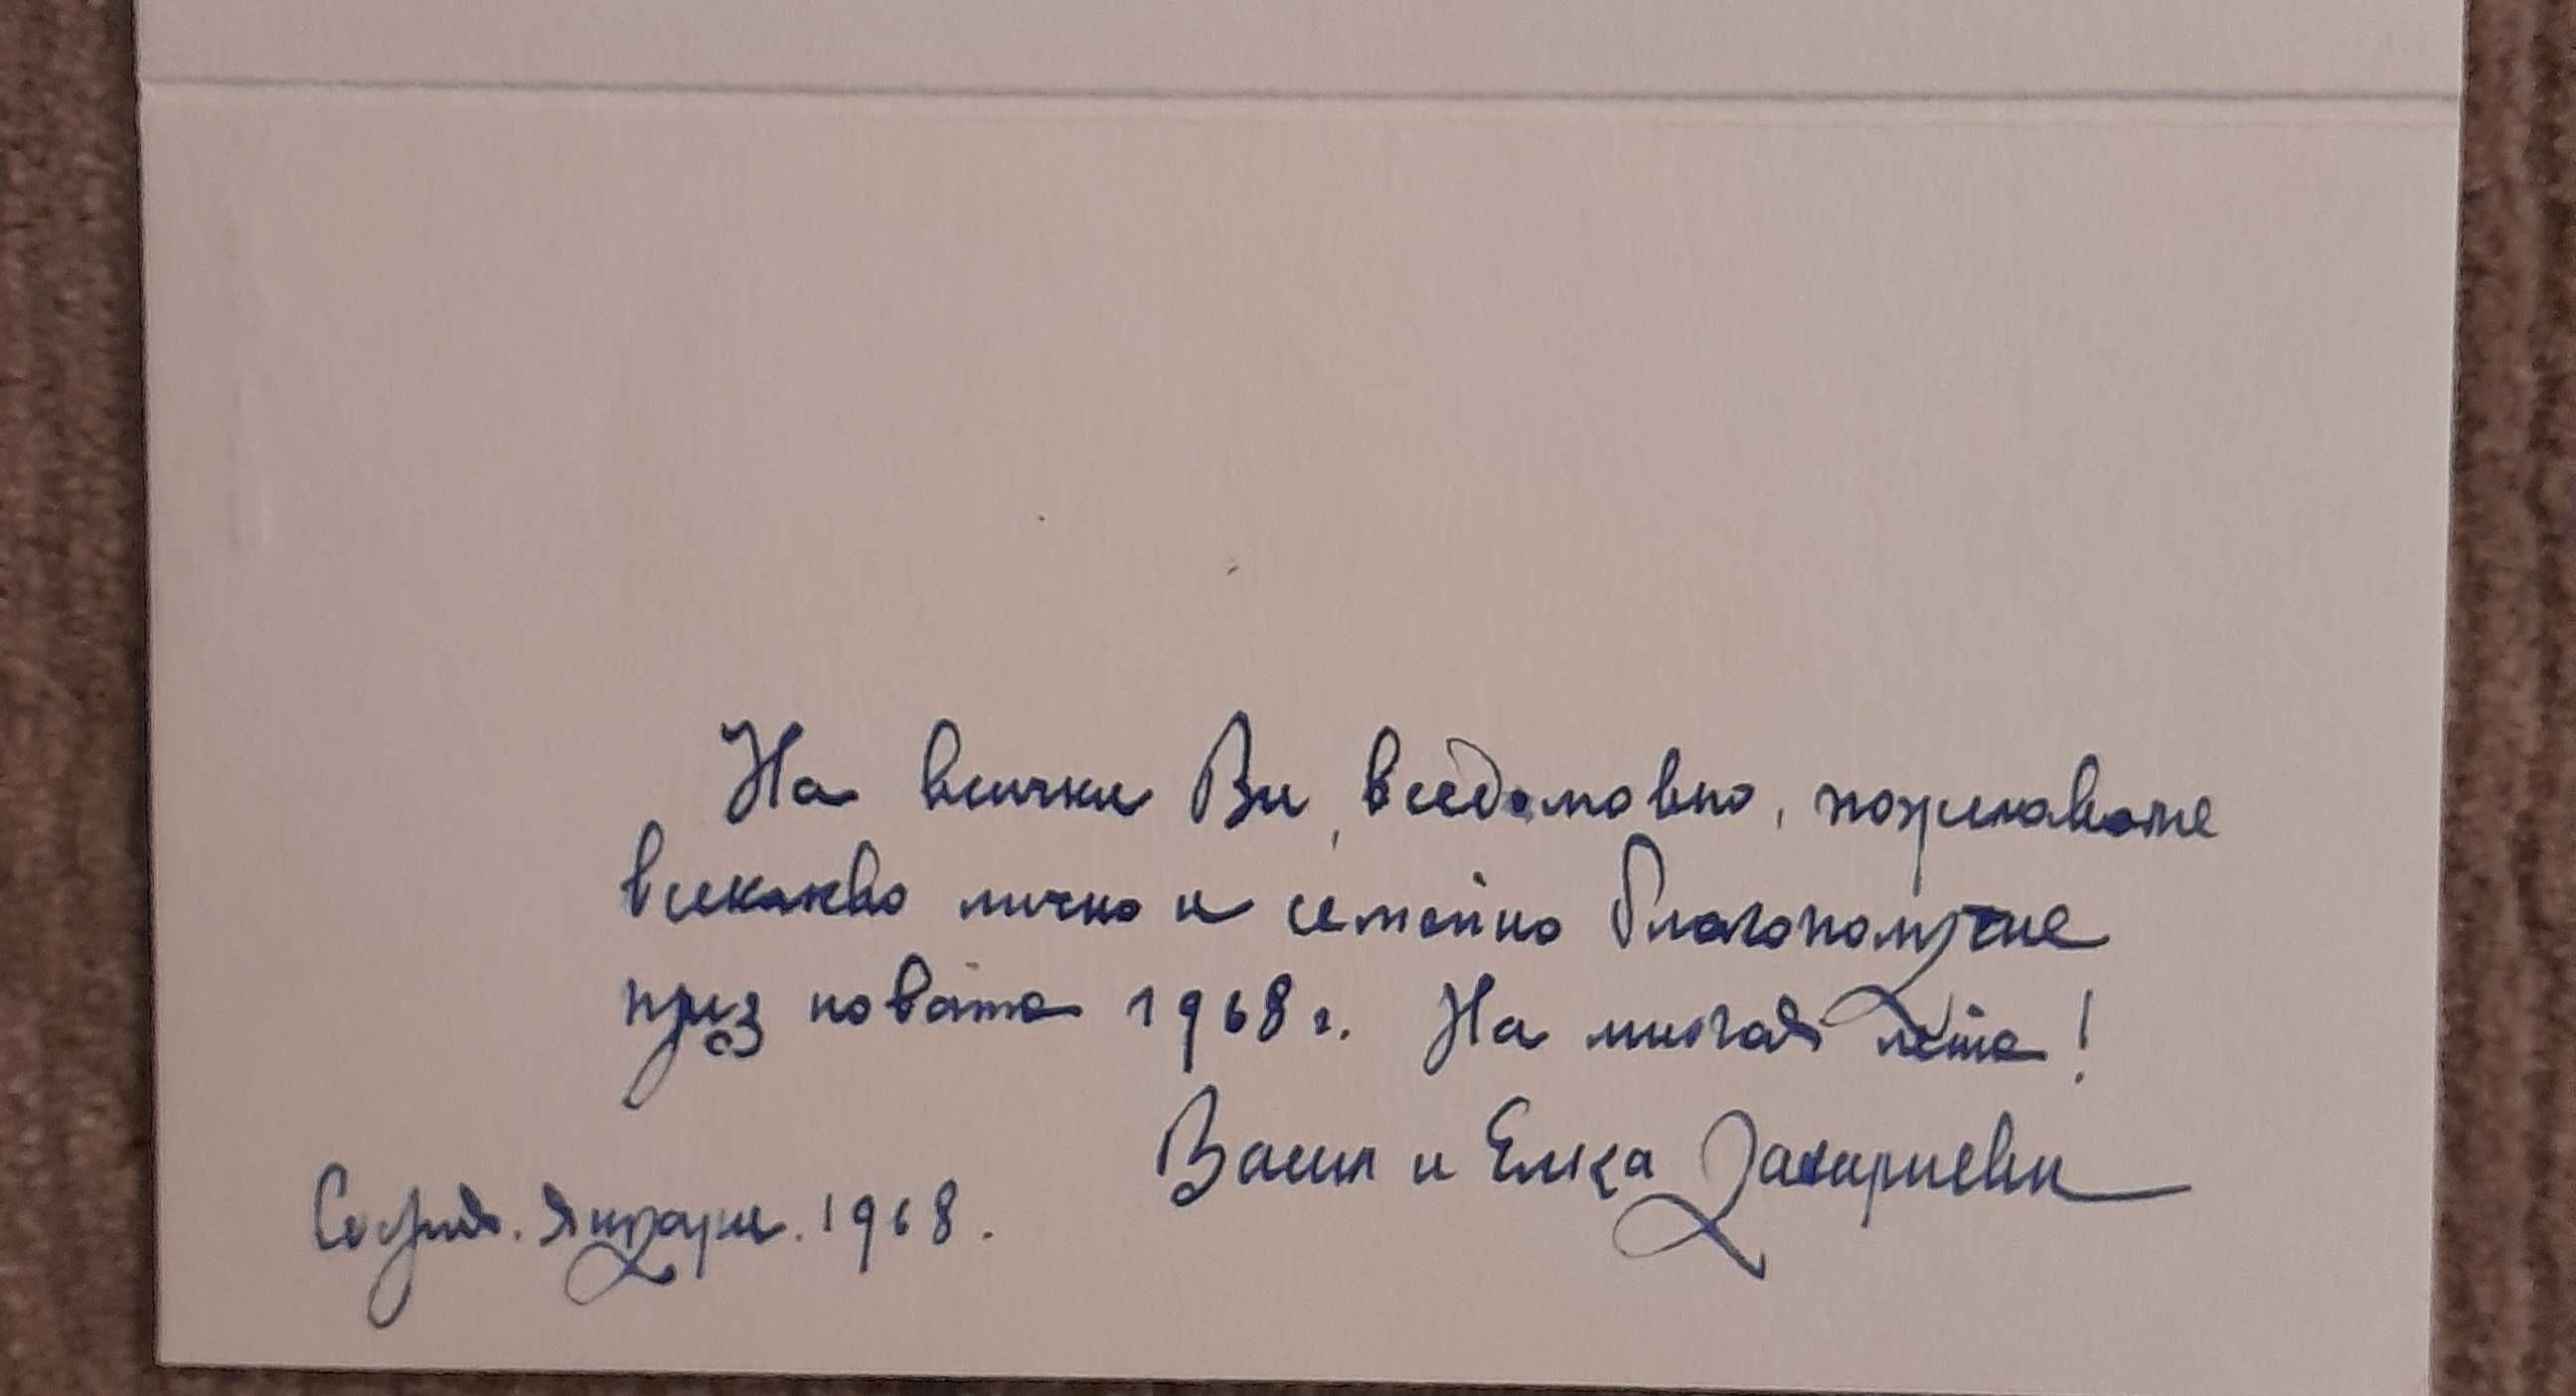 На всички Ви, вседомовно, пожелаваме
всекакво лично и семейно благополучие
през новата 1968 г. На многая лета!
Васил и Елка Захариеви
София. Януари. 1968.